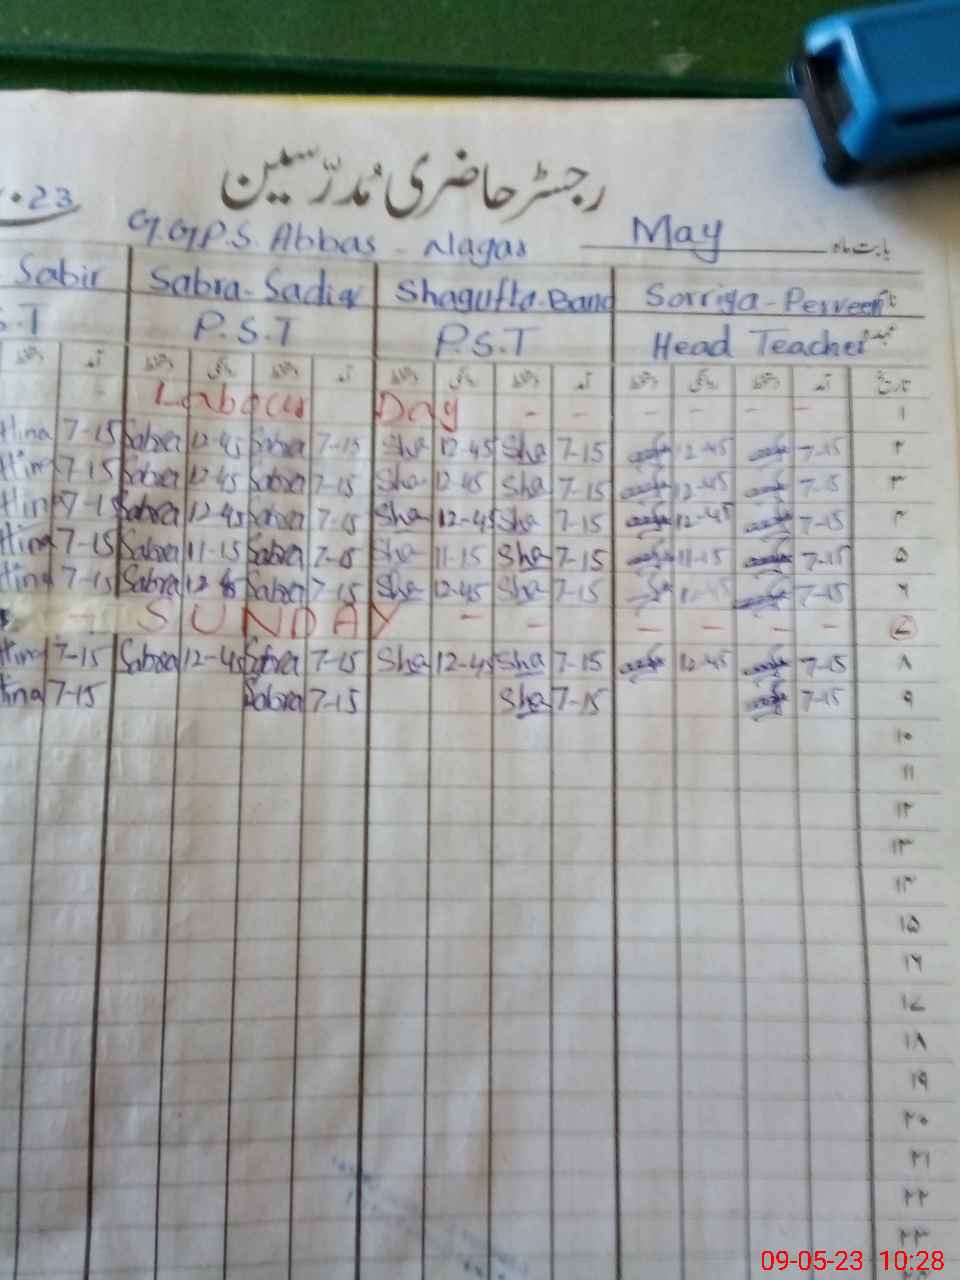 رجسٹر حاضری مُدرّسین
23
G.G.P.S. Abbas - Nagar May بابت ماہ
Sabir Sabra-Sadiq Shagufta-Bano Sorriya-Perveen نام
S.T P.S.T P.S.T Head Teacher عہدہ
دستخط آمد دستخط روانگی دستخط آمد دستخط روانگی دستخط آمد دستخط روانگی دستخط آمد تاریخ
Labour Day - - - - - - ۱
Hina 7-15 Sabra 12-45 Sabra 7-15 Sha 12-45 Sha 7-15 12-45 7-15 ۲
Hina 7-15 Sabra 12-45 Sabra 7-15 Sha 12-45 Sha 7-15 12-45 7-15 ۳
Hina 7-15 Sabra 12-45 Sabra 7-15 Sha 12-45 Sha 7-15 12-45 7-15 ۴
Hina 7-15 Sabra 11-15 Sabra 7-15 Sha 11-15 Sha 7-15 11-15 7-15 ۵
Hina 7-15 Sabra 12-45 Sabra 7-15 Sha 12-45 Sha 7-15 12-45 7-15 ۶
SUNDAY - - - - - - ۷
Hina 7-15 Sabra 12-45 Sabra 7-15 Sha 12-45 Sha 7-15 12-45 7-15 ۸
Hina 7-15 Sabra 7-15 Sha 7-15 7-15 ۹
۱۰
۱۱
۱۲
۱۳
۱۴
۱۵
۱۶
۱۷
۱۸
۱۹
۲۰
۲۱
۲۲
۲۳
09-05-23 10:28